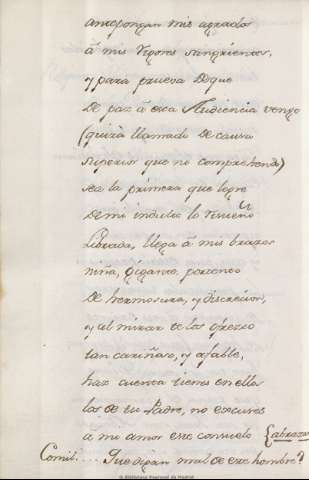 antepongan mis agrados
á mis rigores sangrientos,
y para prueva de que
de paz á esta Audiencia vengo
(quizá llamado de causa
superior que no comprehendo)
sea la primera que logre
de mi indulto lo risueño
Librada, llega á mis brazos
niña, gigante portento
de hermosura, y discrecion,
y al mirar te los ofrezco
tan cariñoso, y afable,
haz cuenta tienes en ellos
los de tu Padre, no escuses
a mi amor este consuelo {abraza
Comit. . . . Que digan mal de este hombre?
© Biblioteca Nacional de Madrid